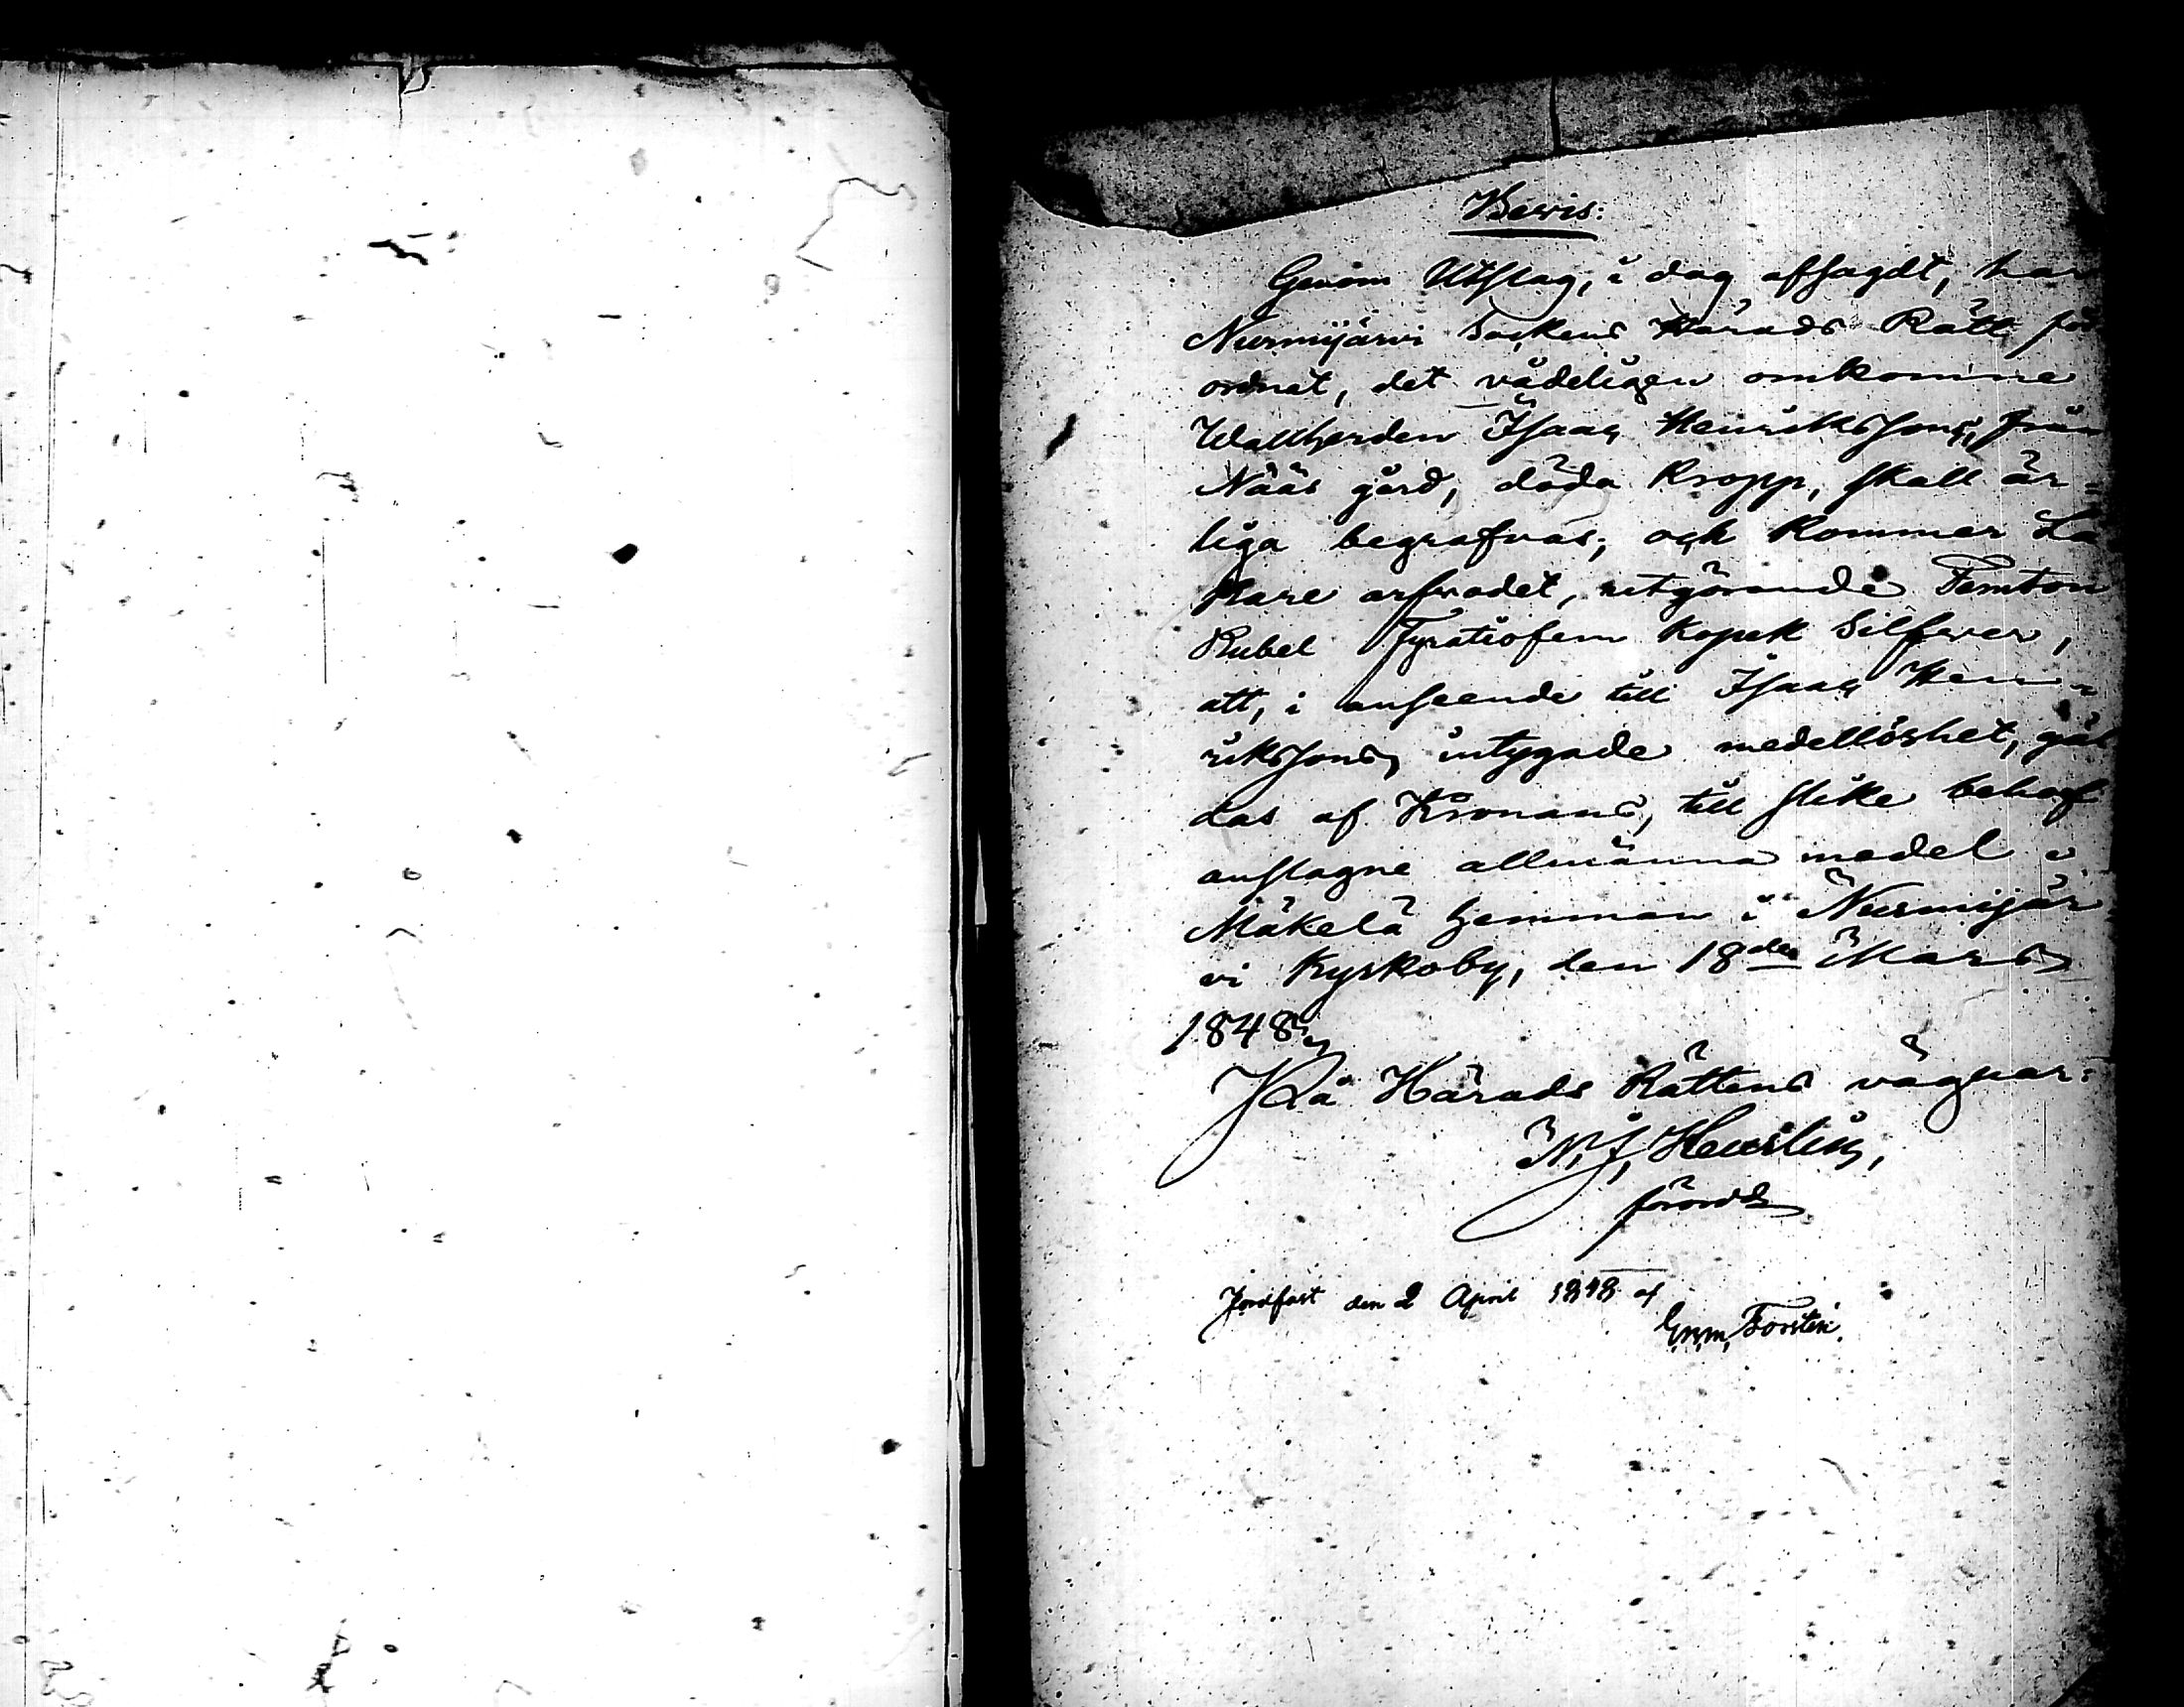 Bevis:
Genom Utslag, i dag afsagdt, har
Nurmijärvi Sockens Härads Rätt för
ordnat, det vådeligen omkomne
Wallherden Isaac Henrikssons, från
Nääs gård, döda kropp, skall är=
liga begrafvas; och kommer Lä
kare arfvodet, utgörande Femton
Rubel Fyratiofem Kopek Silfver,
att, i anseende till Isaac Hen=
rikssons intygade medellöshet, gäl
das af Kronans, till slike behof
anslagne allmänna medel
Mäkelä hemman i Nurmijär
vi Kyrkoby, den 18de Mars
1848.
På Härads Rättens vägnar:
N. J. Heurlin,
förord
Jordfäst den 2 April 1848 af
Enm Forstén.